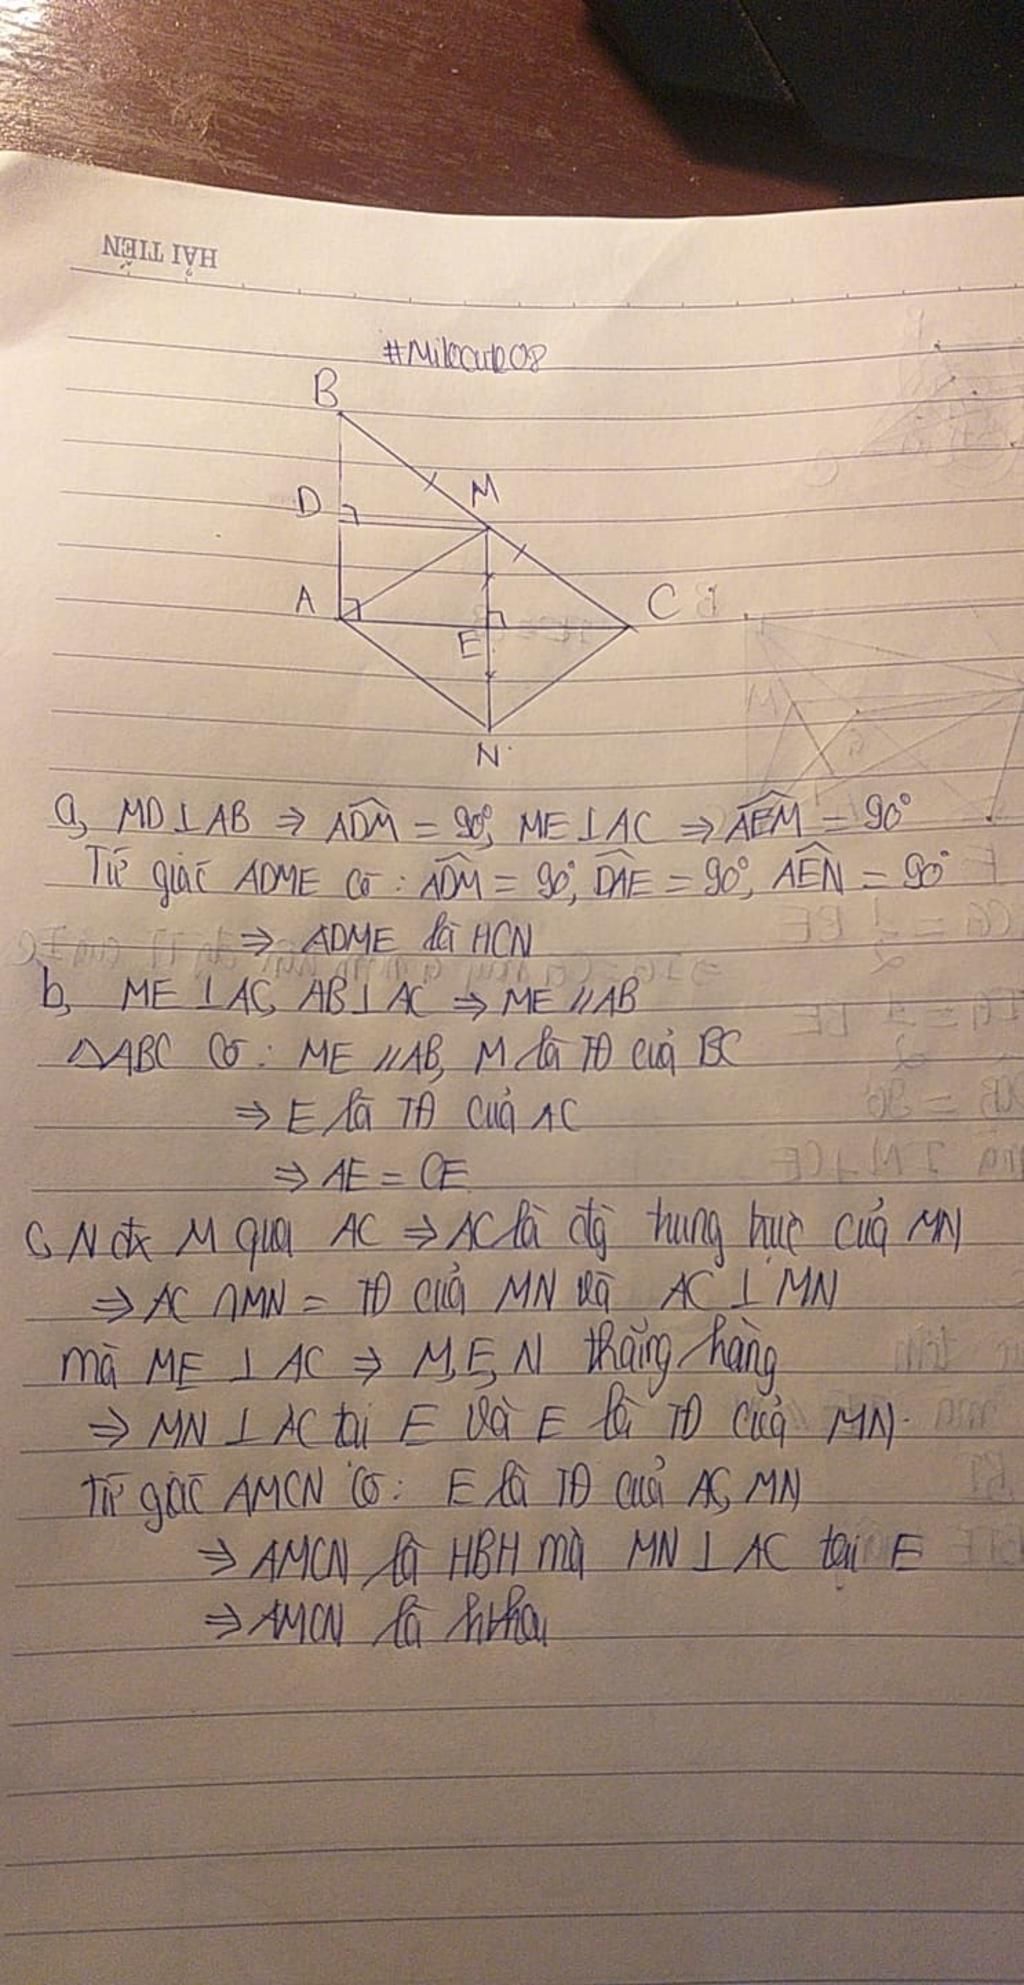 HẢI TIẾN
B
D
M
A
E
C
N
a, MD ⊥ AB ⇒ ∠ADM = 90°, ME ⊥ AC ⇒ ∠AEM = 90°
Tứ giác ADME có : ∠ADM = 90°, ∠DAE = 90°, ∠AEN = 90°
⇒ ADME là HCN
b, ME ⊥ AC, AB ⊥ AC ⇒ ME // AB
△ABC có : ME // AB, M là TĐ của BC
⇒ E là TĐ của AC
⇒ AE = CE
c, N đx M qua AC ⇒ AC là đg trung trực của MN
⇒ AC ∩ MN = TĐ của MN và AC ⊥ MN
mà ME ⊥ AC ⇒ M, E, N thẳng hàng
⇒ MN ⊥ AC tại E và E là TĐ của MN.
Tứ giác AMCN có : E là TĐ của AC, MN
⇒ AMCN là HBH mà MN ⊥ AC tại E
⇒ AMCN là hthoi